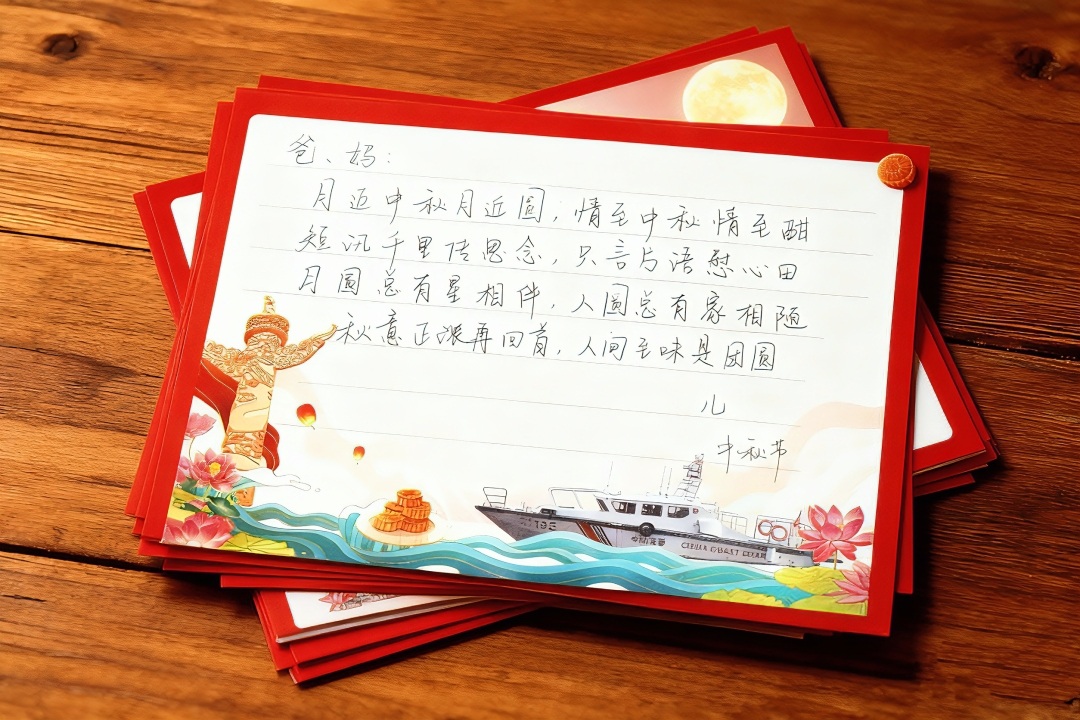 爸、妈:
月近中秋月近圆,情至中秋情至酣
短讯千里传思念,只言片语慰心田
月圆总有星相伴,人圆总有家相随
秋意正浓再回首,人间至味是团圆
儿
中秋节